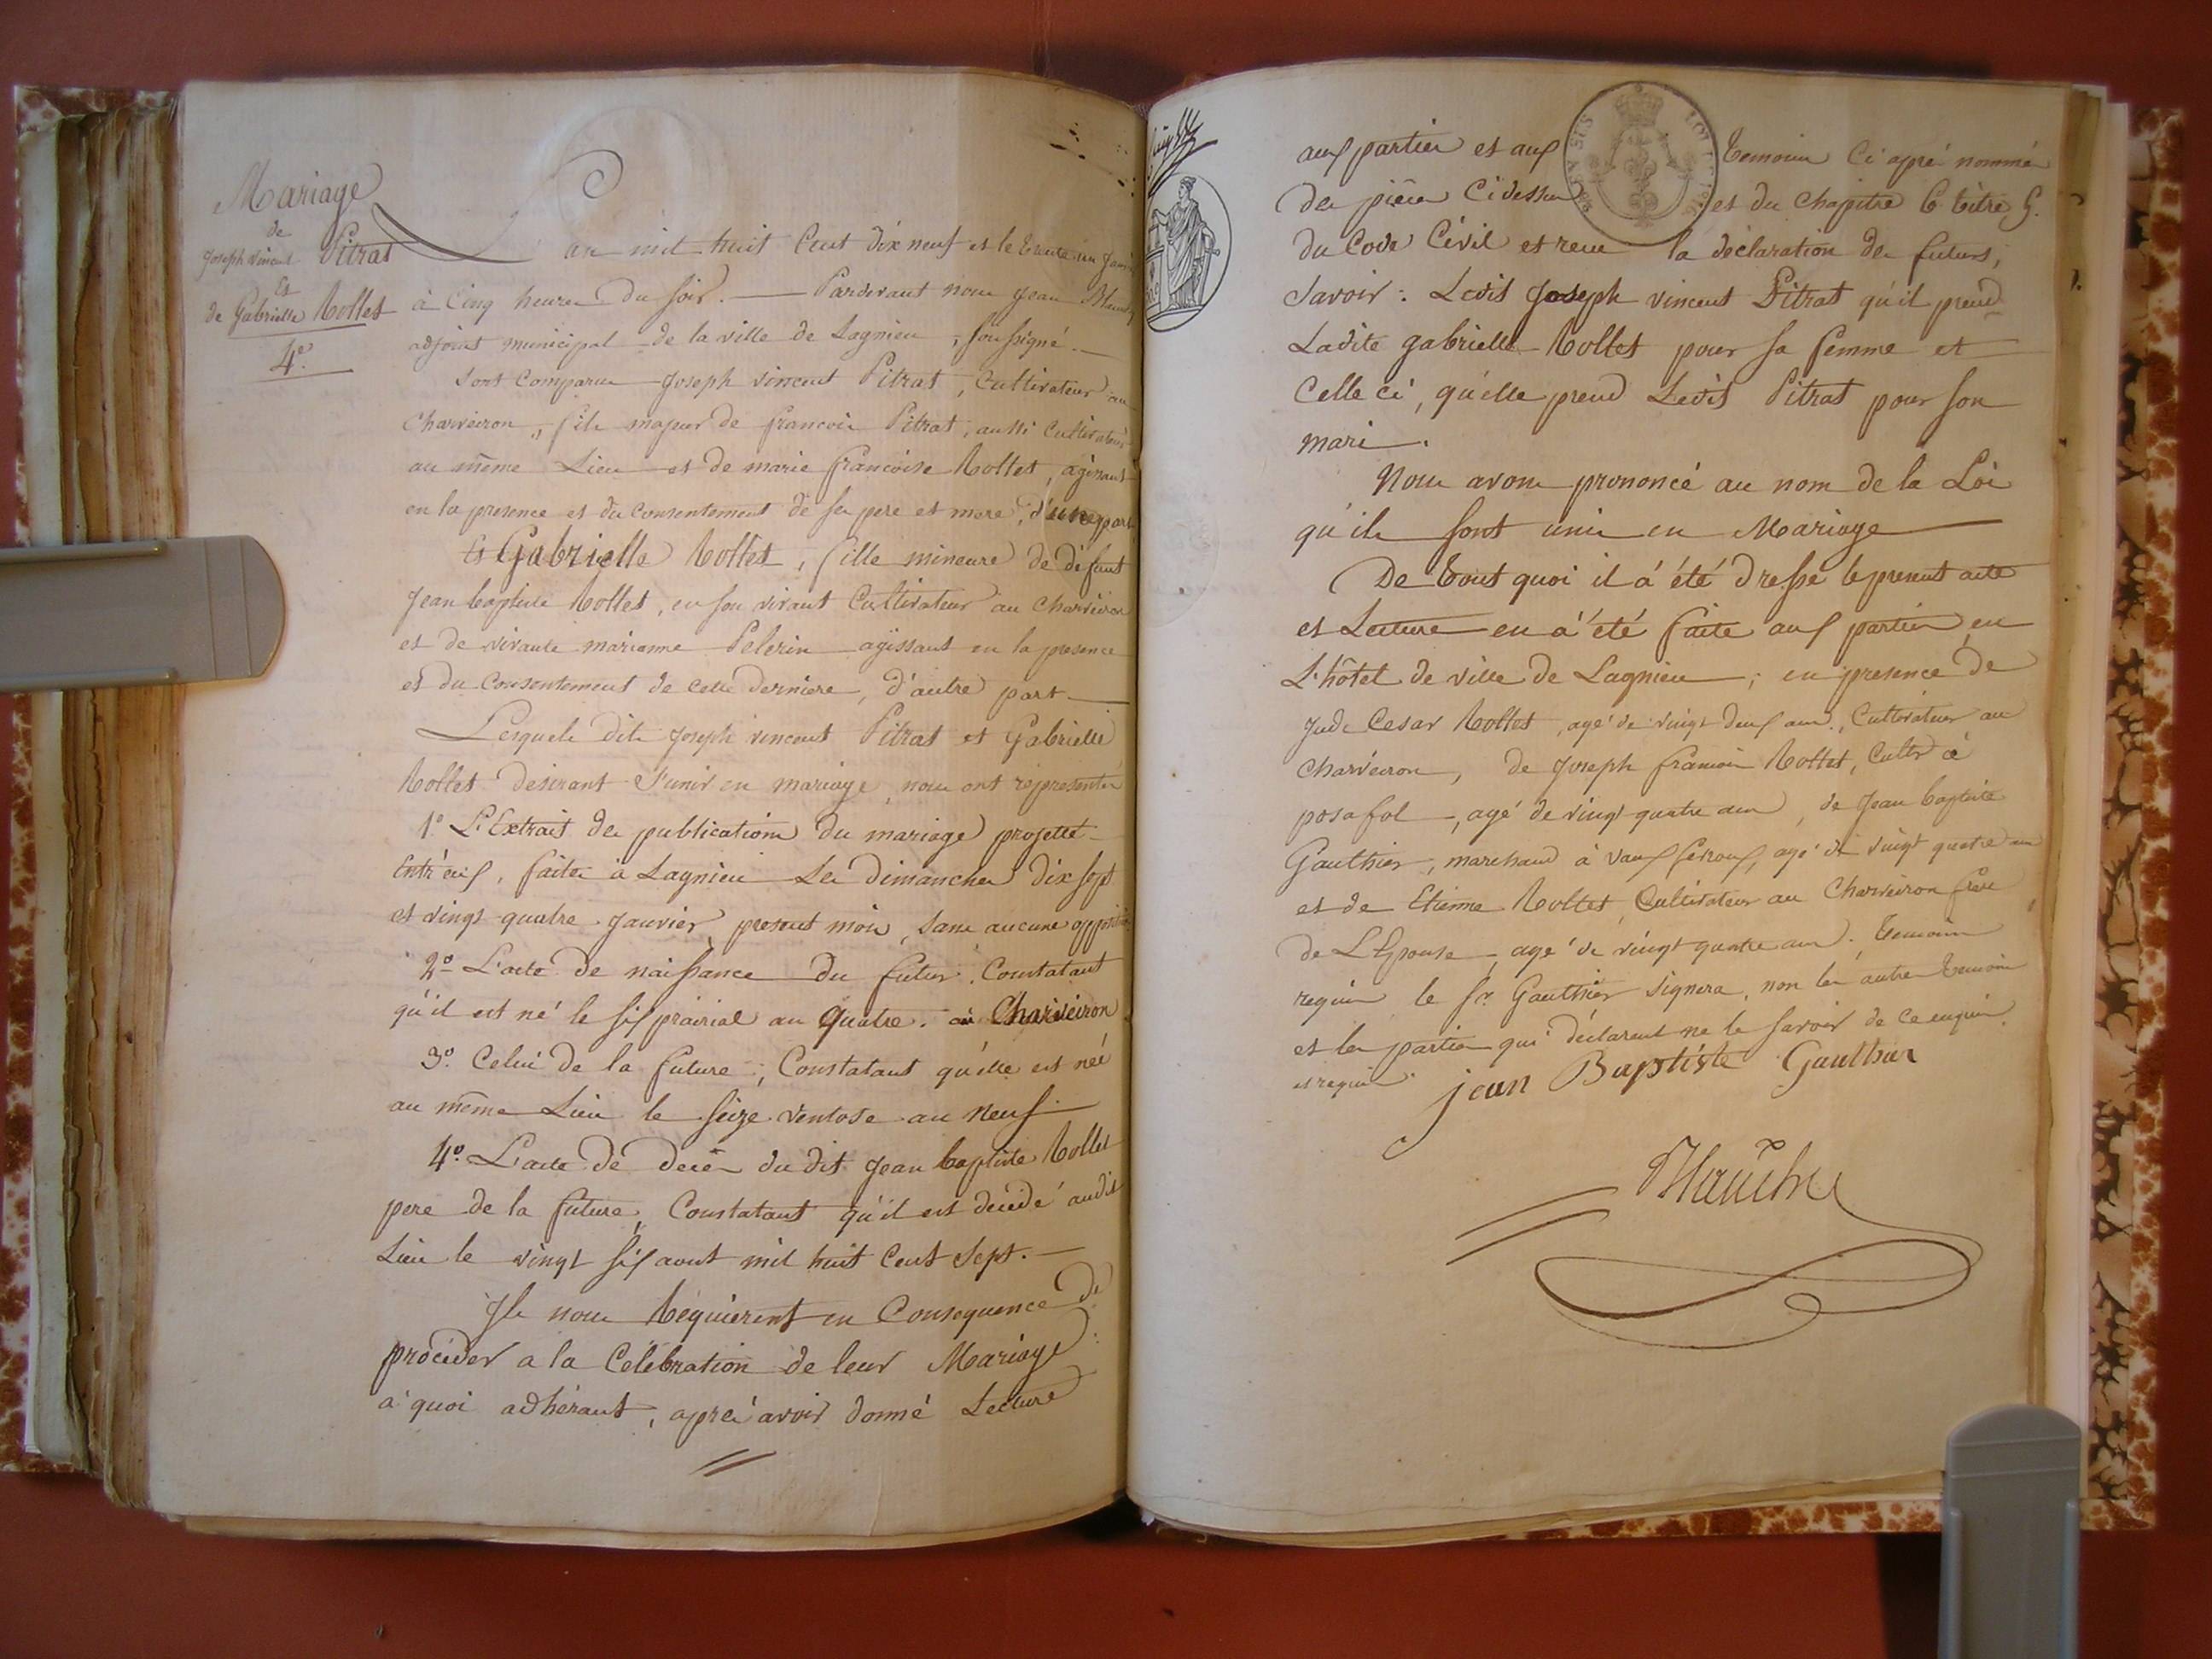 Mariage
de
Joseph vincent Pitrat
Et
de Gabrielle Rollet
4e.
L'an mil huit Cent dix neuf et le trente un Janv
à Cinq heures du soir. — Pardevant nous Jean Blanch
adjoint municipal de la ville de Lagnieu, soussigné. —
Sont comparus Joseph vincent Pitrat, Cultivateur au
Charveiron, fils majeur de francois Pitrat, aussi Cultivateur
au même Lieu et de marie francoise Rollet, agissant
en la presence et du consentement de ses pere et mere, d'une part
Et Gabrielle Rollet, fille mineure de défunt
Jean baptiste Rollet, en son vivant Cultivateur au Charveiron
et de vivante marianne Pelerin agissant en la presence
et du consentement de cette derniere, d'autre part —
Lesquels dits Joseph vincent Pitrat et Gabrielle
Rollet desirant s'unir en mariage, nous ont représentés
1o. L'Extrait des publications du mariage projetté
Entr'eux, faites à Lagnieu Les dimanches dix sept
et vingt quatre Janvier, present mois, sans aucune opposition
2o. L'acte de naissance du futur, Constatant
qu'il est né le six prairial an quatre. au Charveiron
3o. Celui de la future, Constatant qu'elle est née
au même Lieu le seize ventose an neuf
4o. L'acte de décès du dit Jean baptiste Rollet
pere de la future, Constatant qu'il est décédé audit
Lieu le vingt six aout mil huit Cent Sept. —
Ils nous Réquierent en Consequence de
procéder a la Célébration de leur Mariage
à quoi adhérant, après avoir donné Lecture
aux parties et aux temoins Ci après nommés
des pièces Cidessus et du Chapitre 6 titre 5.
du Code Civil et reçu la déclaration des futurs,
Savoir: Ledit Joseph vincent Pitrat qu'il prend
Ladite gabrielle Rollet pour sa femme et
Celle ci, qu'elle prend Ledit Pitrat pour son
mari.
Nous avons prononcé au nom de la Loi
qu'ils sont unis en Mariage —
De tout quoi il à été dressé le present acte
et Lecture en à été faite aux parties en
L'hôtel de ville de Lagnieu, en presence de
Jude Cesar Rollet, agé de vingt deux ans, Cultivateur au
Charveiron, de Joseph francois Rollet, Cultr à
posafol, agé de vingt quatre ans, de Jean baptiste
Gauthier, marchand à vaux ferroux, agé de vingt quatre ans
et de Etienne Rollet, Cultivateur au Charveiron frere
de L'Epouse, agé de vingt quatre ans. temoins
requis le sr. Gauthier signera, non les autres temoins
et les parties qui déclarent ne le savoir de ce enquis
et requis.
jean Baptiste Gauthier
Blanch